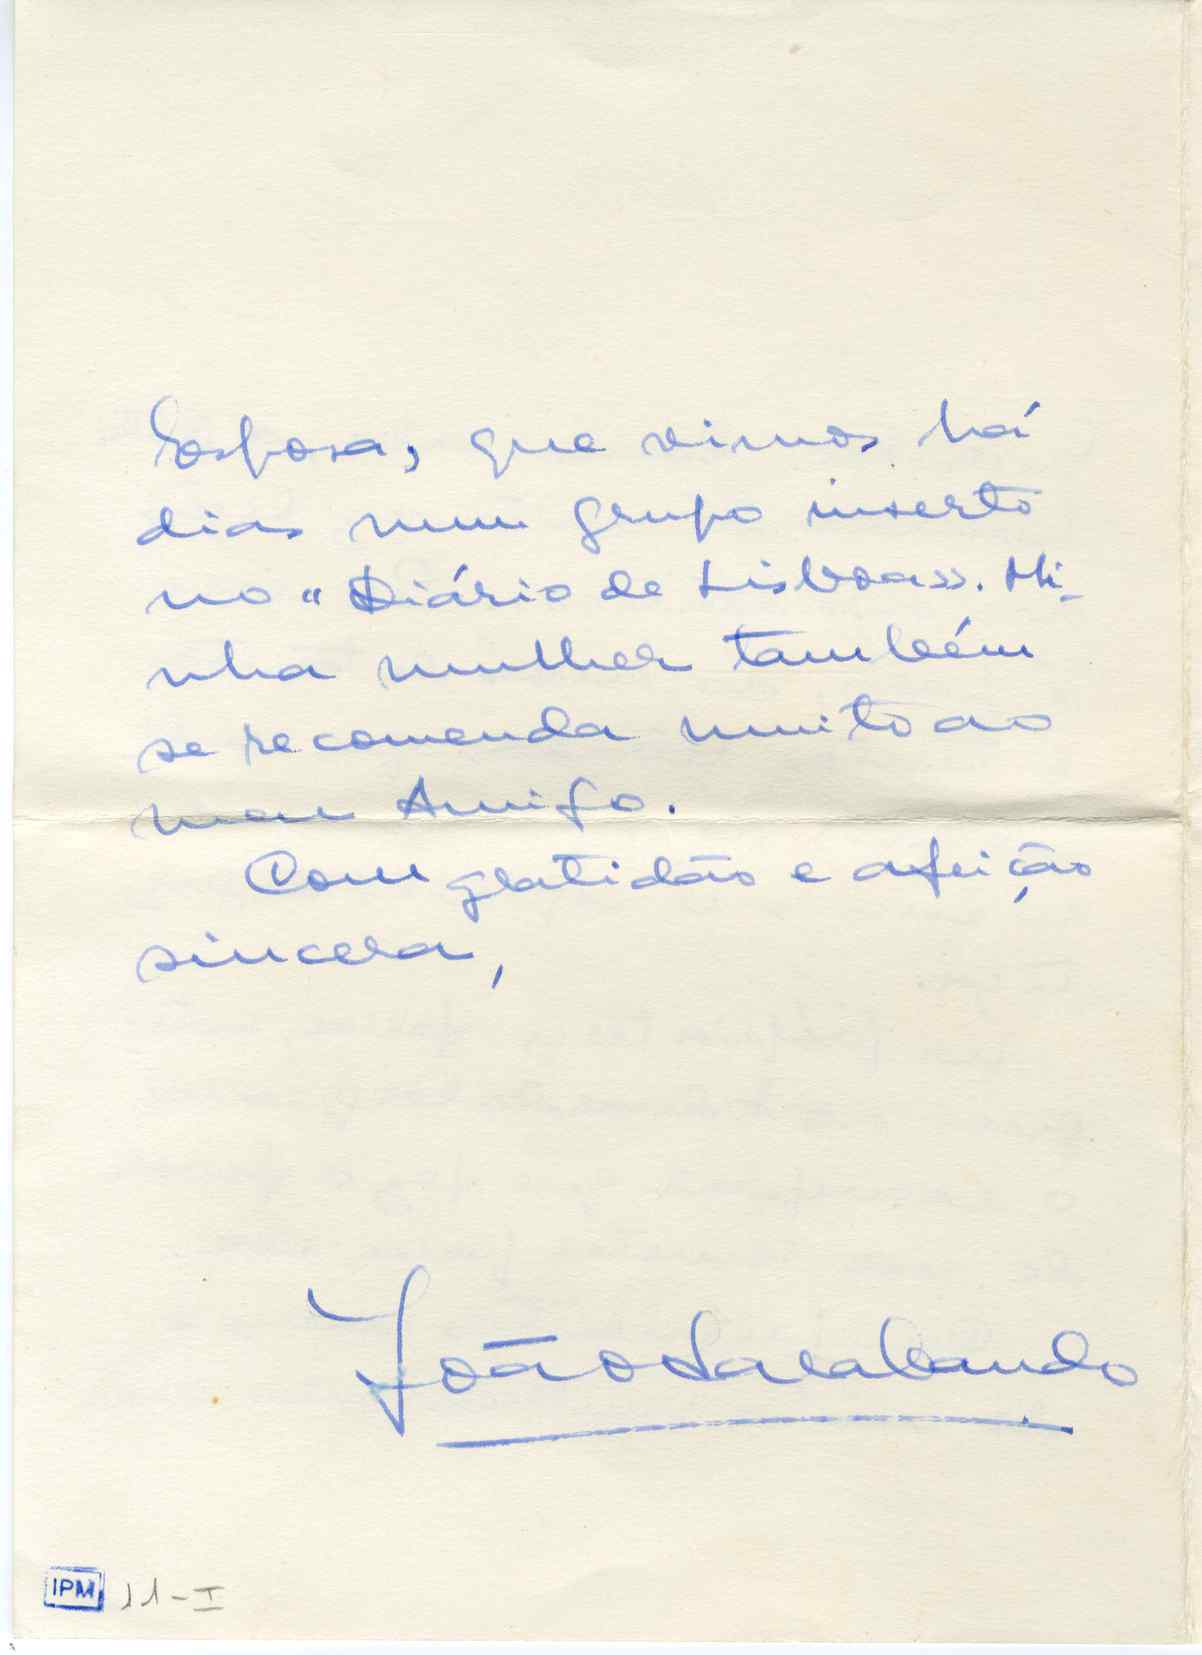 Esposa, que vimos há
dias num grupo inserto
no "Diário de Lisboa». Mi-
nha mulher também
se recomenda muito ao
meu Amigo.
Com gratidão e afeição
sincera,
João Sarabando
IPM 11-I